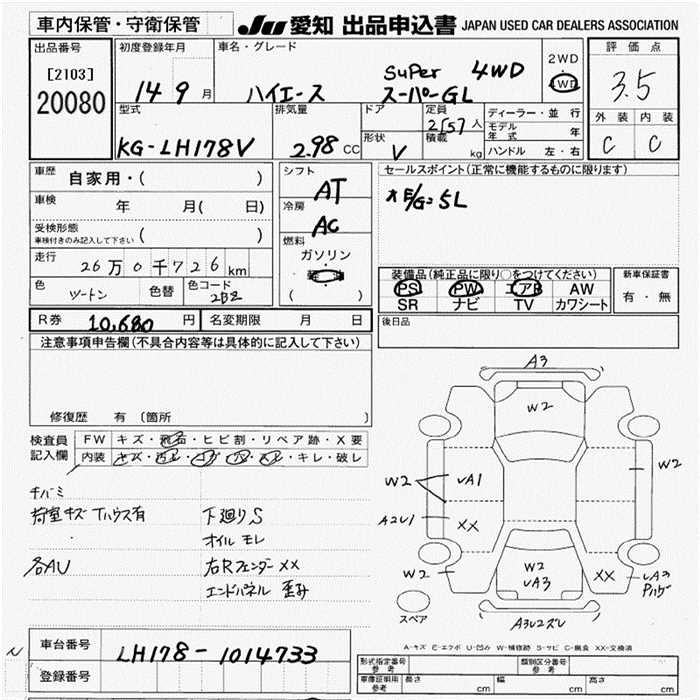 車内保管・守衛保管
JU 愛知 出品申込書 JAPAN USED CAR DEALERS ASSOCIATION
出品番号
[2103]
20080
初度登録年月
14 9 月
車名・グレード
ハイエース
Super 4WD
スーパーGL
2WD
4WD
評価点
3.5
外装 内装
C C
型式
KG-LH178V
排気量
2.98 CC
ドア
形状
V
定員
人
積載
kg
ディーラー・並行
モデル年式 年
ハンドル 左・右
車歴 自家用・( )
車検 年 月( 日)
受検形態
車検付きのみ記入して下さい ( )
走行
26万0千726km
色
ツートン
色替
色コード
2BZ
シフト
AT
冷房
AC
燃料
ガソリン
( )
セールスポイント(正常に機能するものに限ります)
装備品(純正品に限り○をつけてください)
PS PW エアB AW
SR ナビ TV カワシート
新車保証書
有・無
後日品
R券 10,680 円
名変期限 月 日
注意事項申告欄(不具合内容等は具体的に記入して下さい)
修復歴 有 〔箇所 〕
検査員記入欄
FW キズ・飛石・ヒビ割・リペア跡・X要
内装 キズ・汚レ・コゲ・穴・スレ・キレ・破レ
チバミ
荷室キズ Tハウス有
各AU
下廻りS
オイル モレ
右Rフェンダー XX
エンドパネル 歪み
A3
W2
W2
A1
W2
A2U1
XX
W2
W2
A3
XX
A3
A3U2ズレ
スペア
A-キズ E-エクボ U-凹み W-補修跡 S-サビ C-腐食 XX-交換済
車台番号 LH178-1014733
登録番号
型式指定番号
参考
類別区分番号
参考
車庫証明用
参考
長さ cm
幅 cm
高さ cm